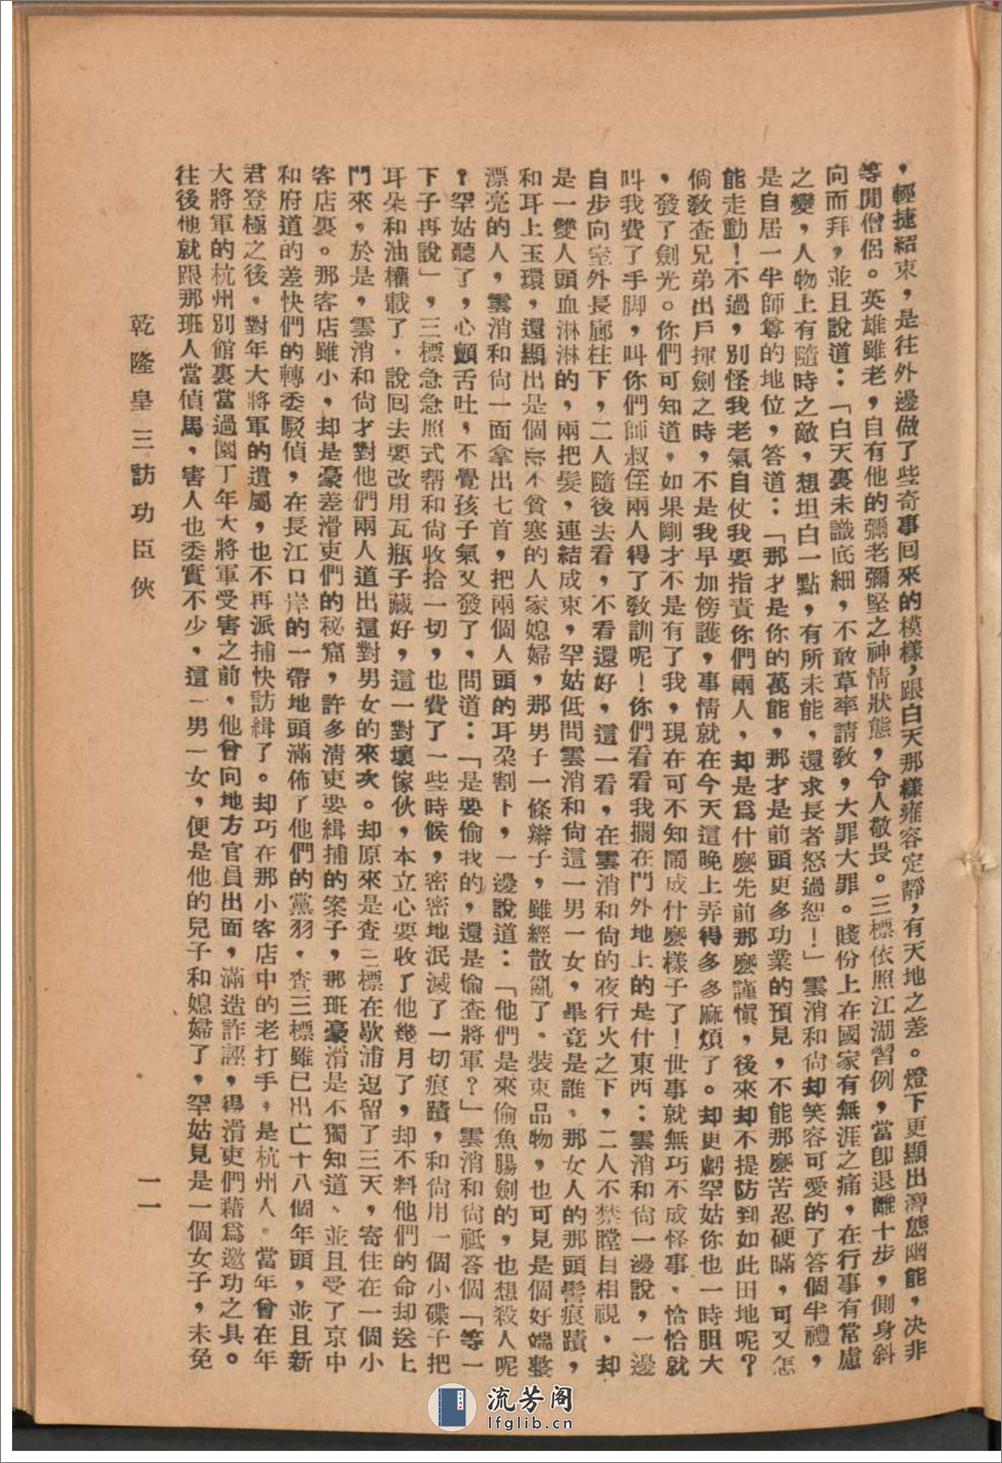 ，輕捷結束，是往外邊做了些奇事回來的模樣，跟白天那樣雍容定靜，有天地之差。燈下更顯出潛態幽能，决非
等閒僧侶。英雄雖老，自有他的彌老彌堅之神情狀態，令人敬畏。三標依照江湖習例，當卽退離十步，側身斜
向而拜，並且說道：「白天裏未識底細，不敢草率請敎，大罪大罪。賤份上在國家有無涯之痛，在行事有常慮
之變，人物上有隨時之敵，想坦白一點，有所未能，還求長者恕過恕！」雲消和尙却笑容可愛的了答個半禮，
是自居一半師尊的地位，答道：「那才是你的萬能，那才是前頭更多功業的預見，不能那麼苦忍硬瞞，可又怎
能走動！不過，別怪我老氣自仗我要指責你們兩人，却是爲什麼先前那麼謹愼，後來却不提防到如此田地呢？
倘敎查兄弟出戶揮劍之時，不是我早加傍護，事情就在今天這晚上弄得多多麻煩了。却更虧罕姑你也一時胆大
，發了劍光。你們可知道，如果剛才不是有了我，現在可不知鬧成什麼樣子了！世事就無巧不成怪事，恰恰就
叫我費了手脚，叫你們師叔侄兩人得了敎訓呢！你們看看我擱在門外地上的是什東西：雲消和尙一邊說，一邊
自步向室外長廊柱下，二人隨後去看，不看還好，這一看，在雲消和尙的夜行火之下，二人不禁瞠目相視，却
是一雙人頭血淋淋的，兩把髮，連結成束，罕姑低問雲消和尙這一男一女，畢竟是誰。那女人的那頭髻痕蹟，
和耳上玉環，還顯出是個不貧寒的人家媳婦，那男子一條辮子，雖經散亂了，裝束品物，也可見是個好端整
漂亮的人，雲消和尙一面拿出匕首，把兩個人頭的耳朶割下，一邊說道：「他們是來偷魚腸劍的，也想殺人呢
？罕姑聽了，心顫舌吐，不覺孩子氣又發了，問道：「是要偷我的，還是偷查將軍？」雲消和尙祗答個「等一
下子再說」，三標急急照式帮和尙收拾一切，也費了一些時候，密密地泯滅了一切痕蹟，和尙用一個小碟子把
耳朵和油權載了，說回去要改用瓦瓶子藏好，這一對壞傢伙，本立心要收了他幾月了，却不料他們的命却送上
門來，於是，雲消和尙才對他們兩人道出這對男女的來次。却原來是查三標在歇浦逗留了三天，寄住在一個小
客店裏。那客店雖小，却是豪差滑吏們的秘窟，許多淸吏要緝捕的案子，那班豪滑是不獨知道、並且受了京中
和府道的差快們的轉委駁偵，在長江口岸的一帶地頭滿佈了他們的黨羽，查三標雖已出亡十八個年頭，並且新
君登極之後，對年大將軍的遺屬，也不再派捕快訪緝了。却巧在那小客店中的老打手，是杭州人。當年曾在年
大將軍的杭州別館裏當過園丁年大將軍受害之前，他曾向地方官員出面，滿造詐誣，得滑吏們藉爲邀功之具。
往後他就跟那班人當偵馬，害人也委實不少，這一男一女，便是他的兒子和媳婦了，罕姑見是一個女子，未免
乾隆皇三訪功臣俠
一一
流芳阁
lfglib.cn